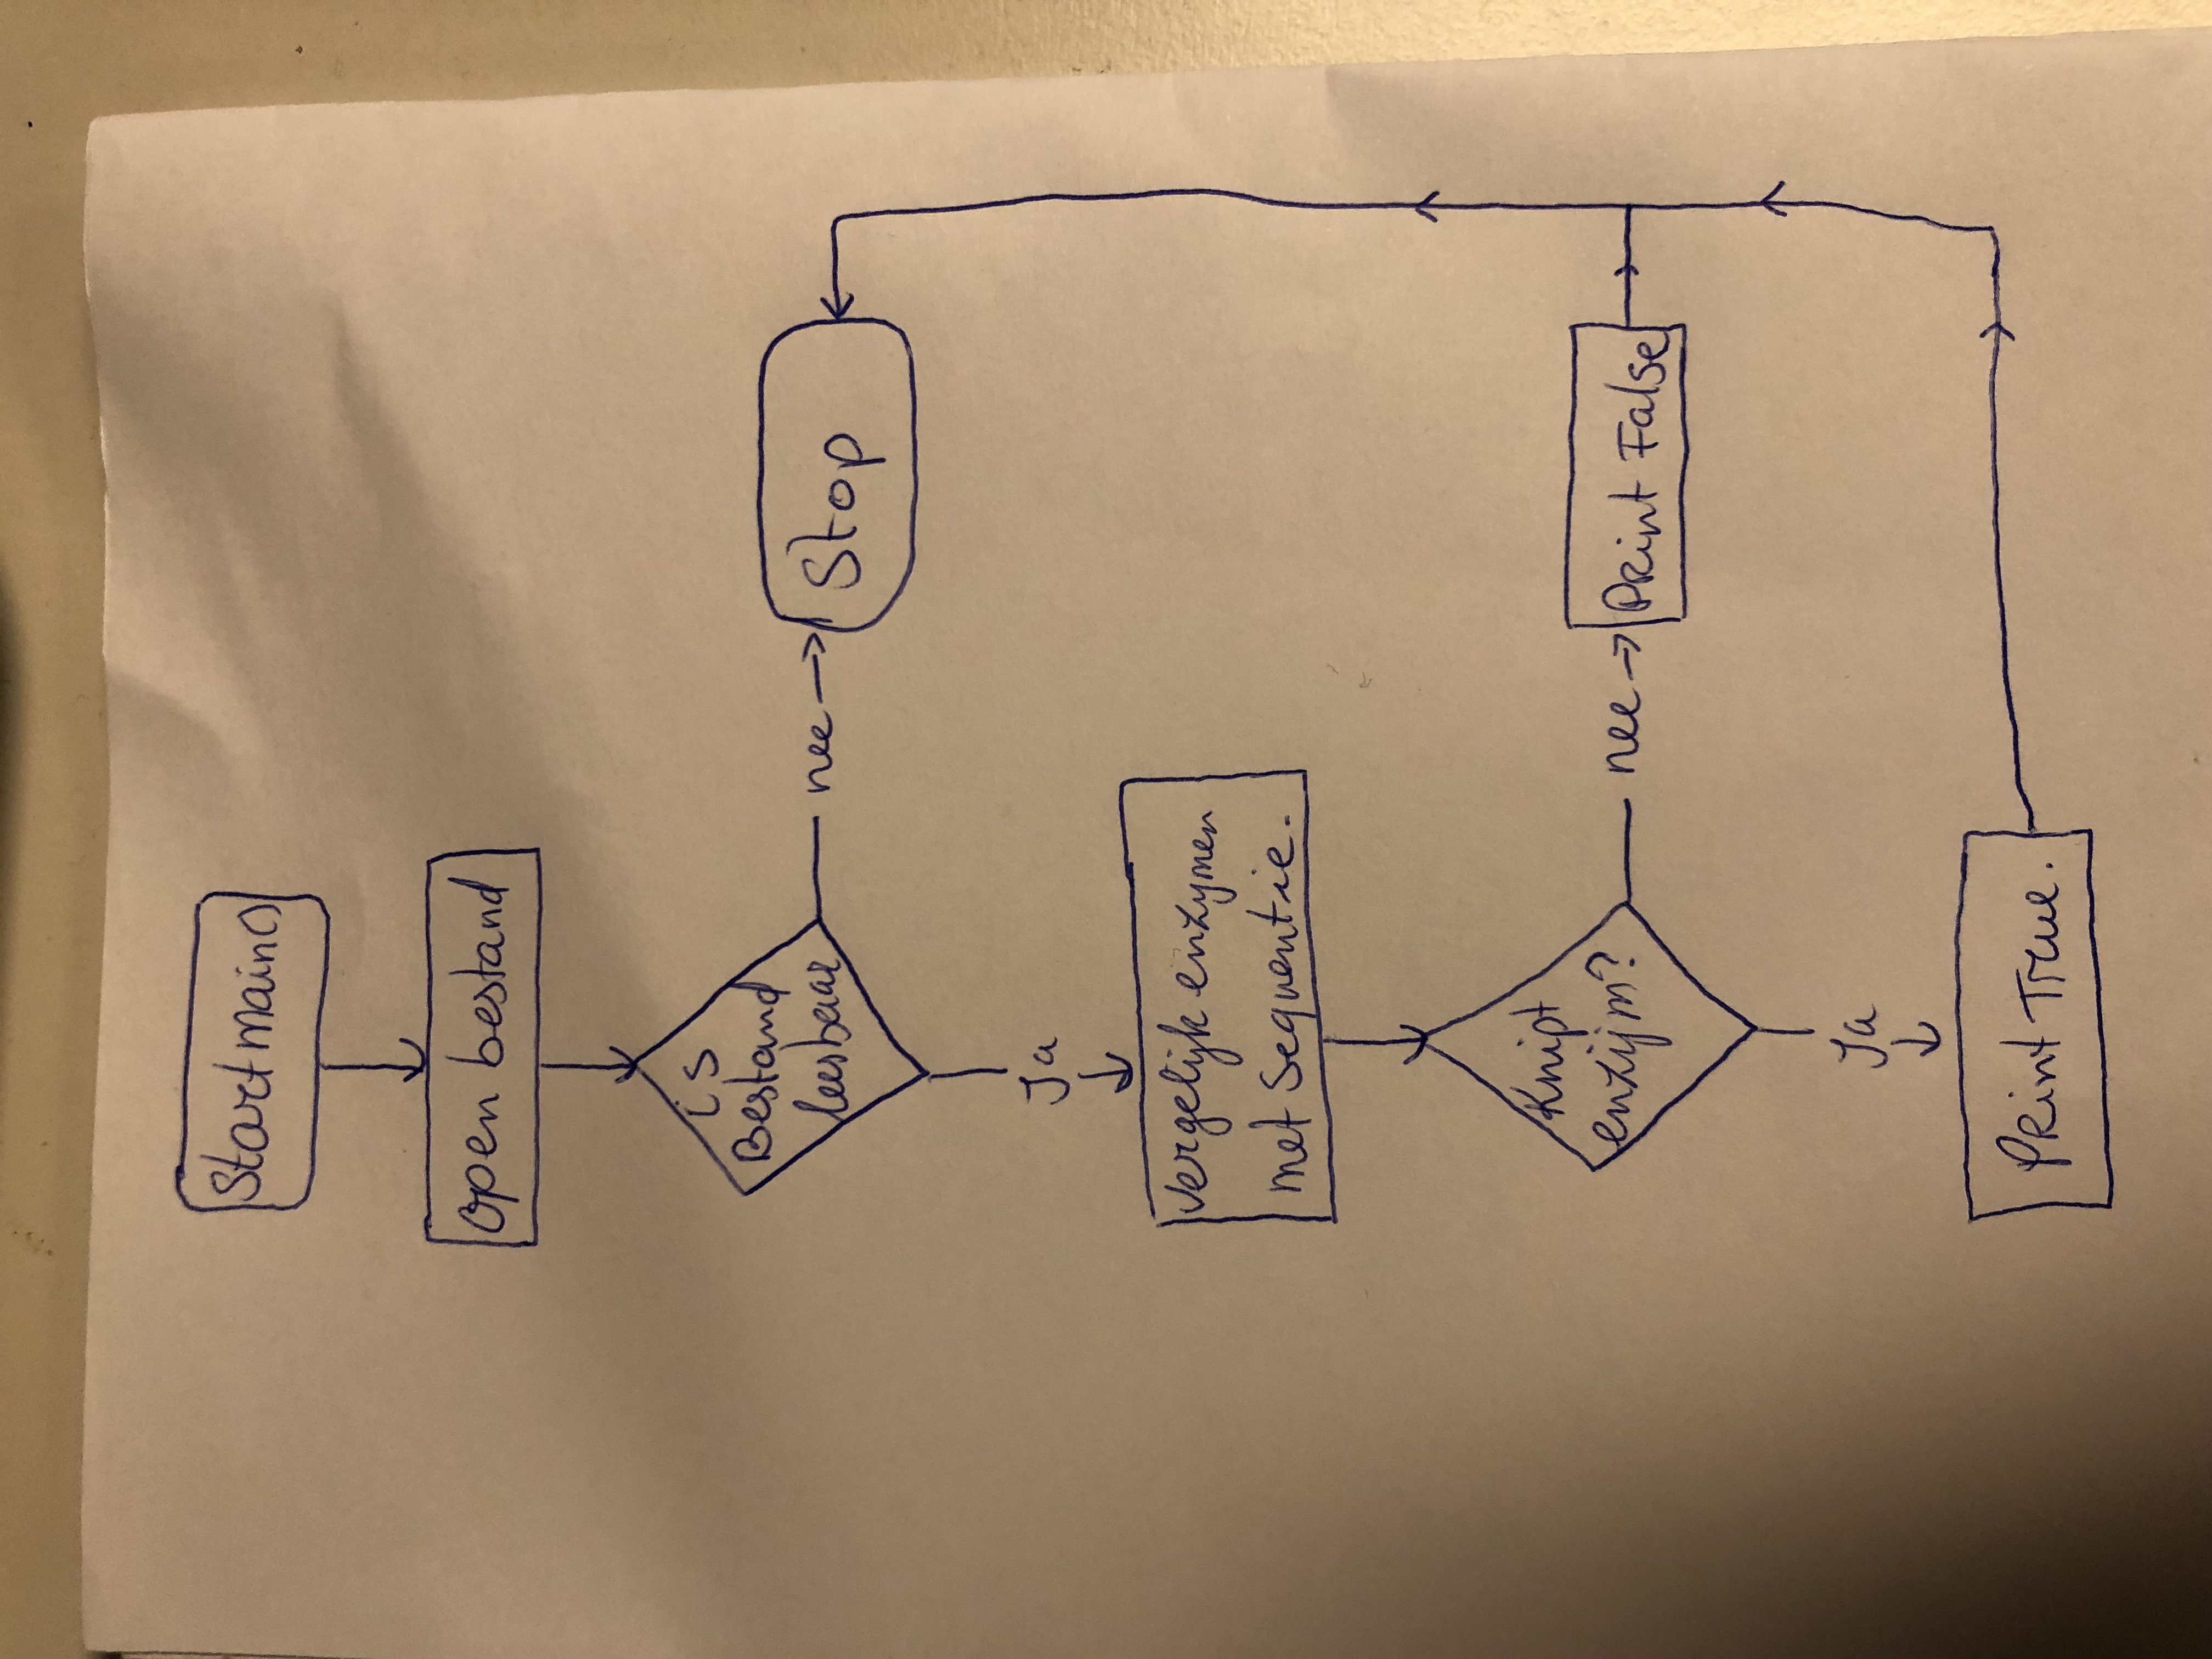 Start main()
open bestand
is
Bestand
leesbaar
nee
Stop
Ja
Vergelijk enzymen
met Sequentie.
Knipt
enzijm?
nee
Print False
Ja
Print True.